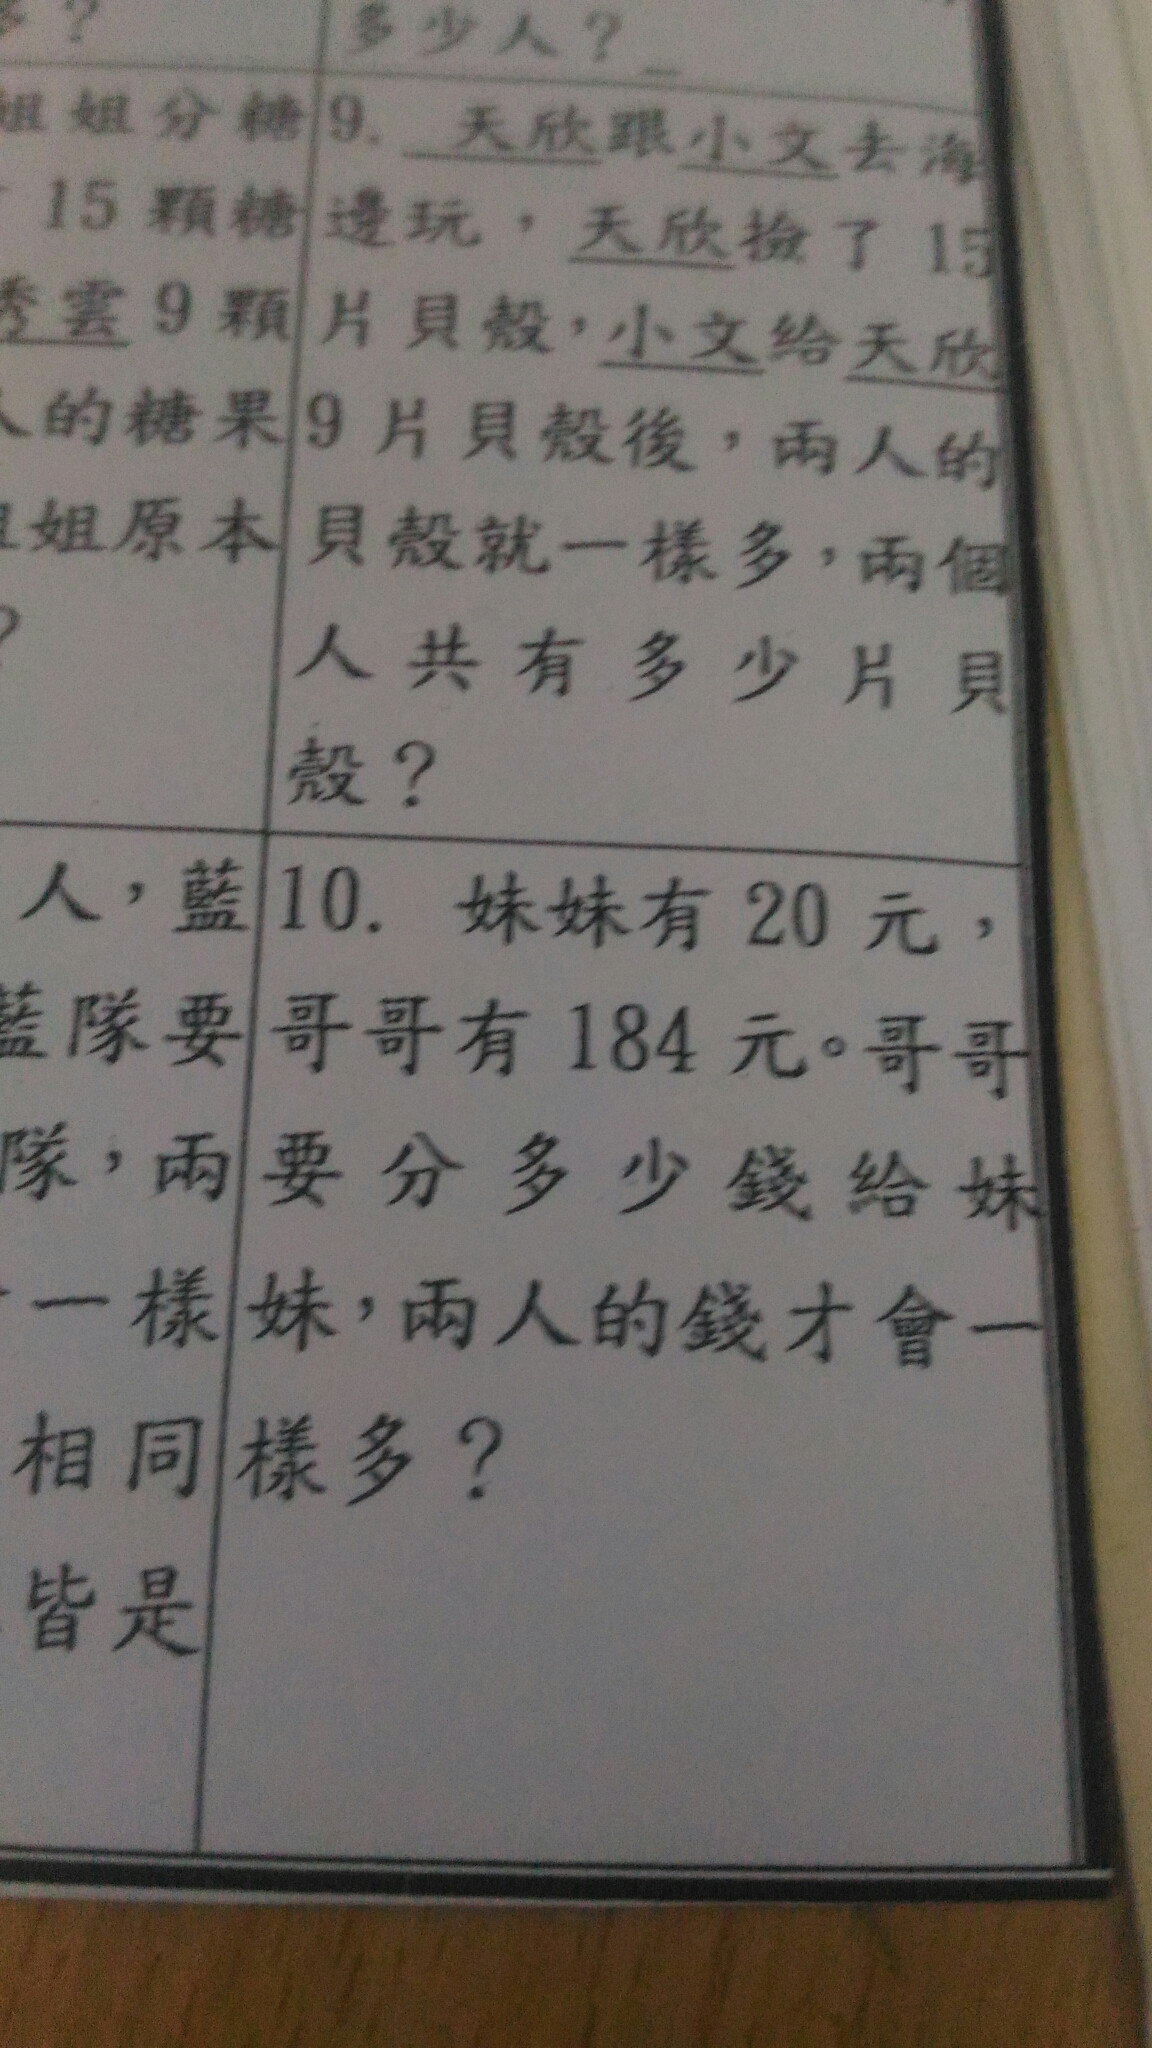 ？
多少人？
姐姐分糖
15 顆糖
秀雲 9 顆
人的糖果
姐姐原本
？
9. 天欣跟小文去海
邊玩，天欣撿了 15
片貝殼，小文給天欣
9 片貝殼後，兩人的
貝殼就一樣多，兩個
人共有多少片貝
殼？
人，藍
藍隊要
隊，兩
一樣
相同
皆是
10. 妹妹有 20 元，
哥哥有 184 元。哥哥
要分多少錢給妹
妹，兩人的錢才會一
樣多？